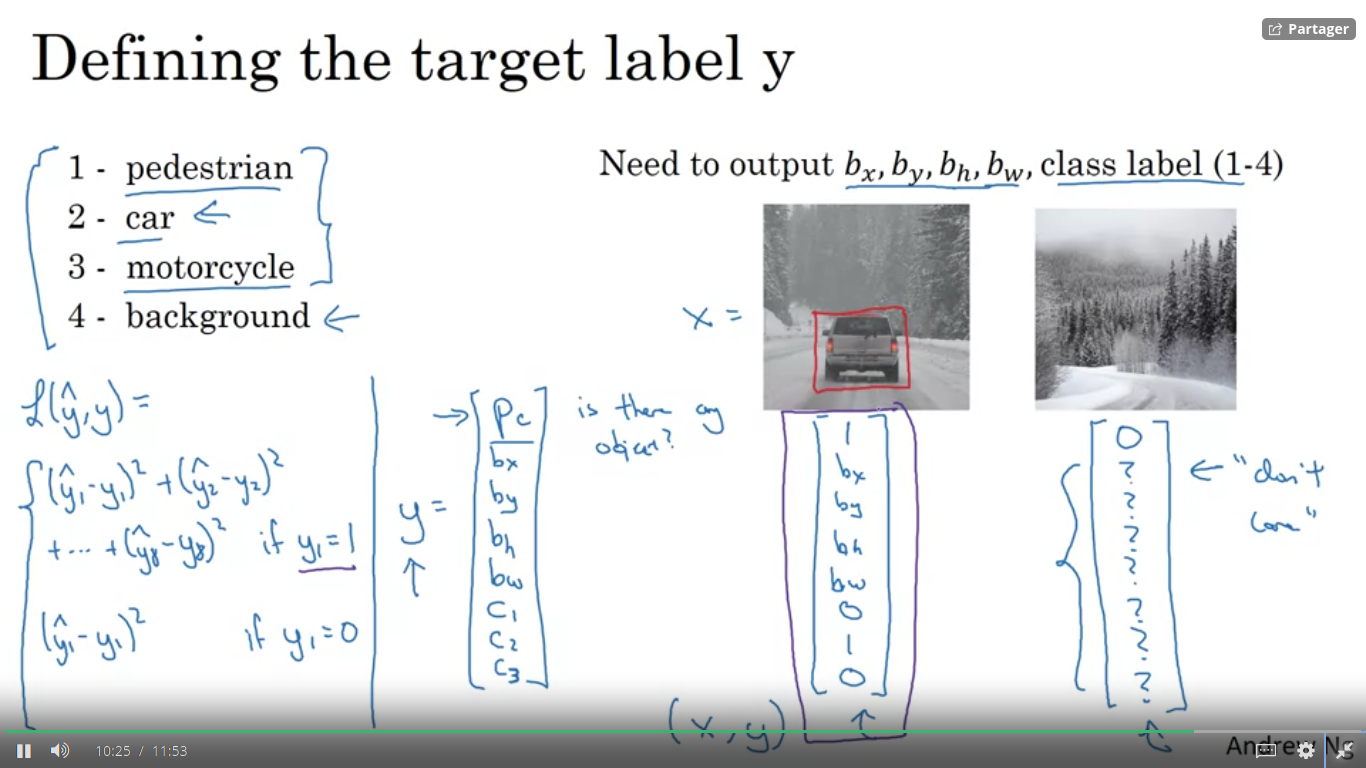 Partager
Defining the target label y
1 - pedestrian
2 - car ←
3 - motorcycle
4 - background ←
Need to output bₓ, b_y, b_h, b_w, class label (1-4)
x =
ℒ(ŷ, y) =
(ŷ₁ - y₁)² + (ŷ₂ - y₂)²
+ ... + (ŷ₈ - y₈)² if y₁ = 1
(ŷ₁ - y₁)² if y₁ = 0
y =
→ Pc
bx
by
bh
bw
C1
C2
C3
is there any
object?
1
bx
by
bh
bw
0
1
0
(x, y)
0
?
?
?
?
?
?
?
← "don't
care"
Andrew Ng
10:25 / 11:53